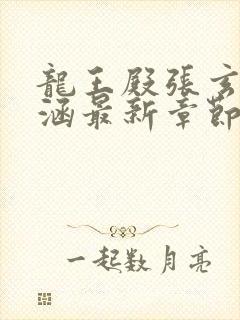 龍王殿張玄
涵最新章節
一起数月亮